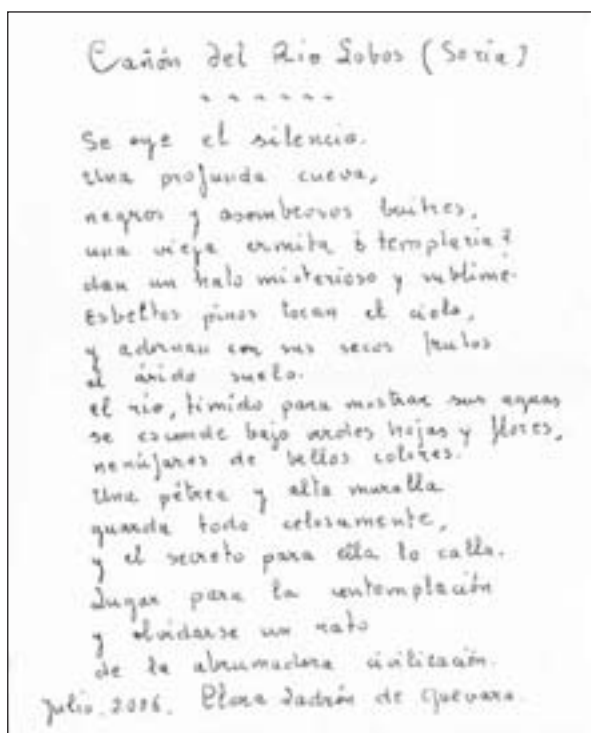 Cañón del Rio Lobos (Soria)
Se oye el silencio.
Una profunda cueva,
negros y asombrosos buitres,
una vieja ermita ¿templaria?
dan un halo misterioso y sublime.
Esbeltos pinos tocan el cielo,
y adornan con sus secos frutos
el árido suelo.
el río, tímido para mostrar sus aguas
se esconde bajo verdes hojas y flores,
nenúfares de bellos colores.
Una pétrea y alta muralla
guarda todo celosamente,
y el secreto para ella lo calla.
Lugar para la contemplación
y olvidarse un rato
de la abrumadora civilización.
Julio. 2006. Ladrón de Guevara.